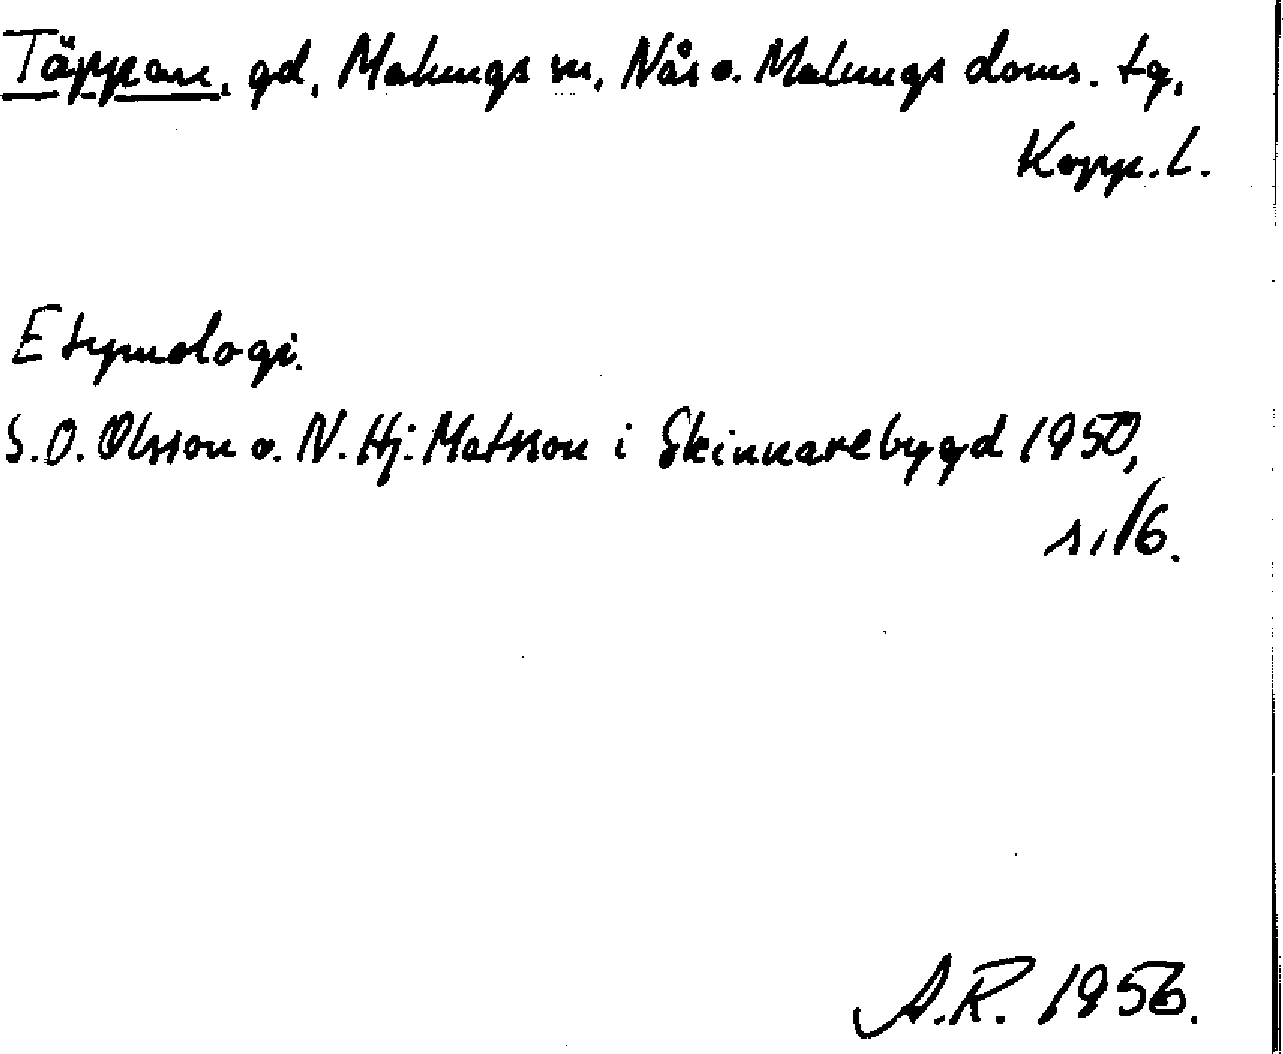 Täppan, gd, Malungs sn, Nås o. Malungs doms. tg,
Kopp. l.
Etymologi.
S.O. Olsson o. N. Hj. Matsson i Skinnarebygd 1950,
s. 16.
A.R. 1956.